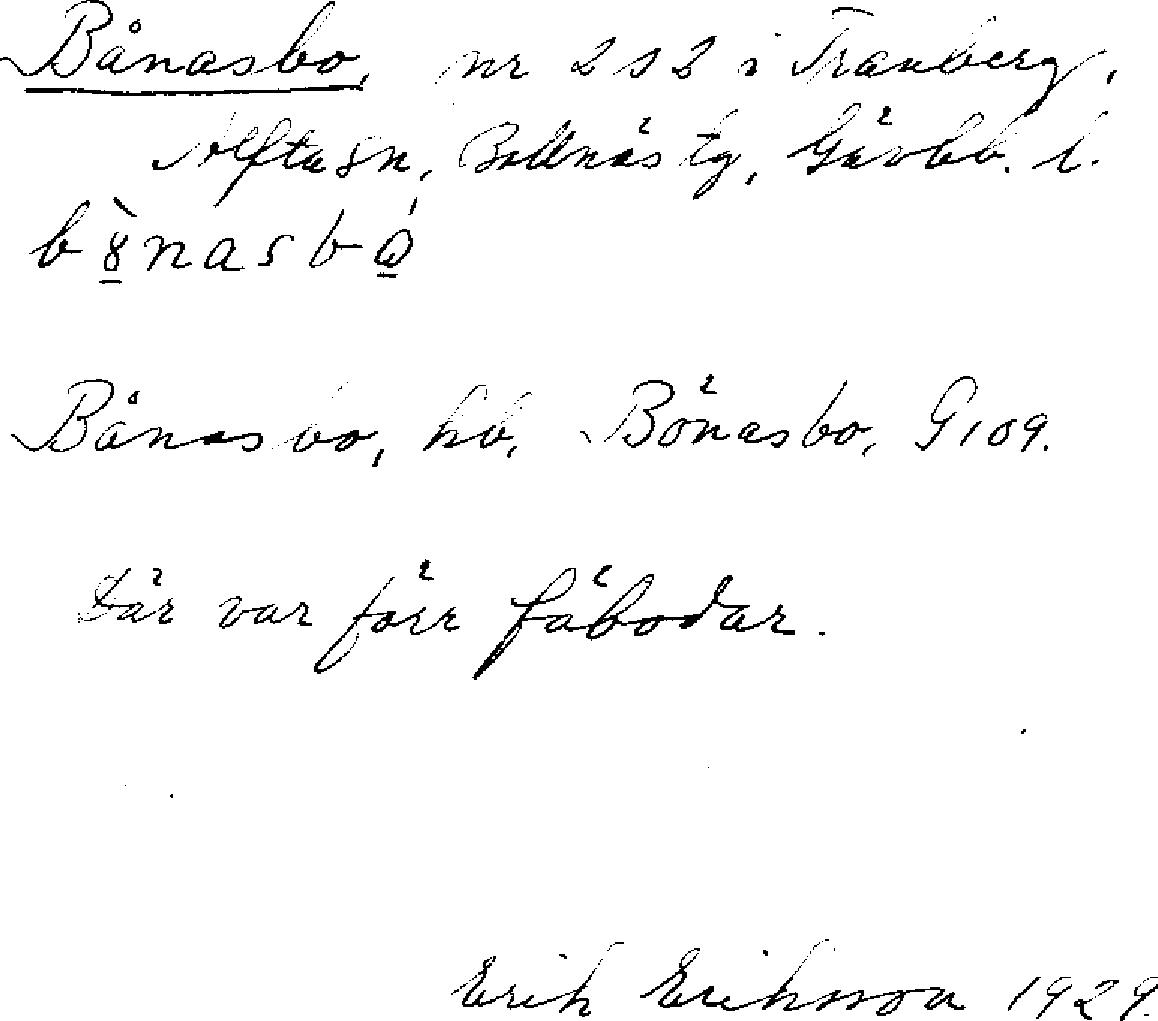 Bånasbo, nr 2 s 2 i Tranberg,
Alfta sn, Bollnäs tg, Gävleb. l.
b8̱̀nasbo̱̍
Bånasbo, hb, Bönasbo, G 109.
Där var förr fäbodar.
Erik Eriksson 1929.